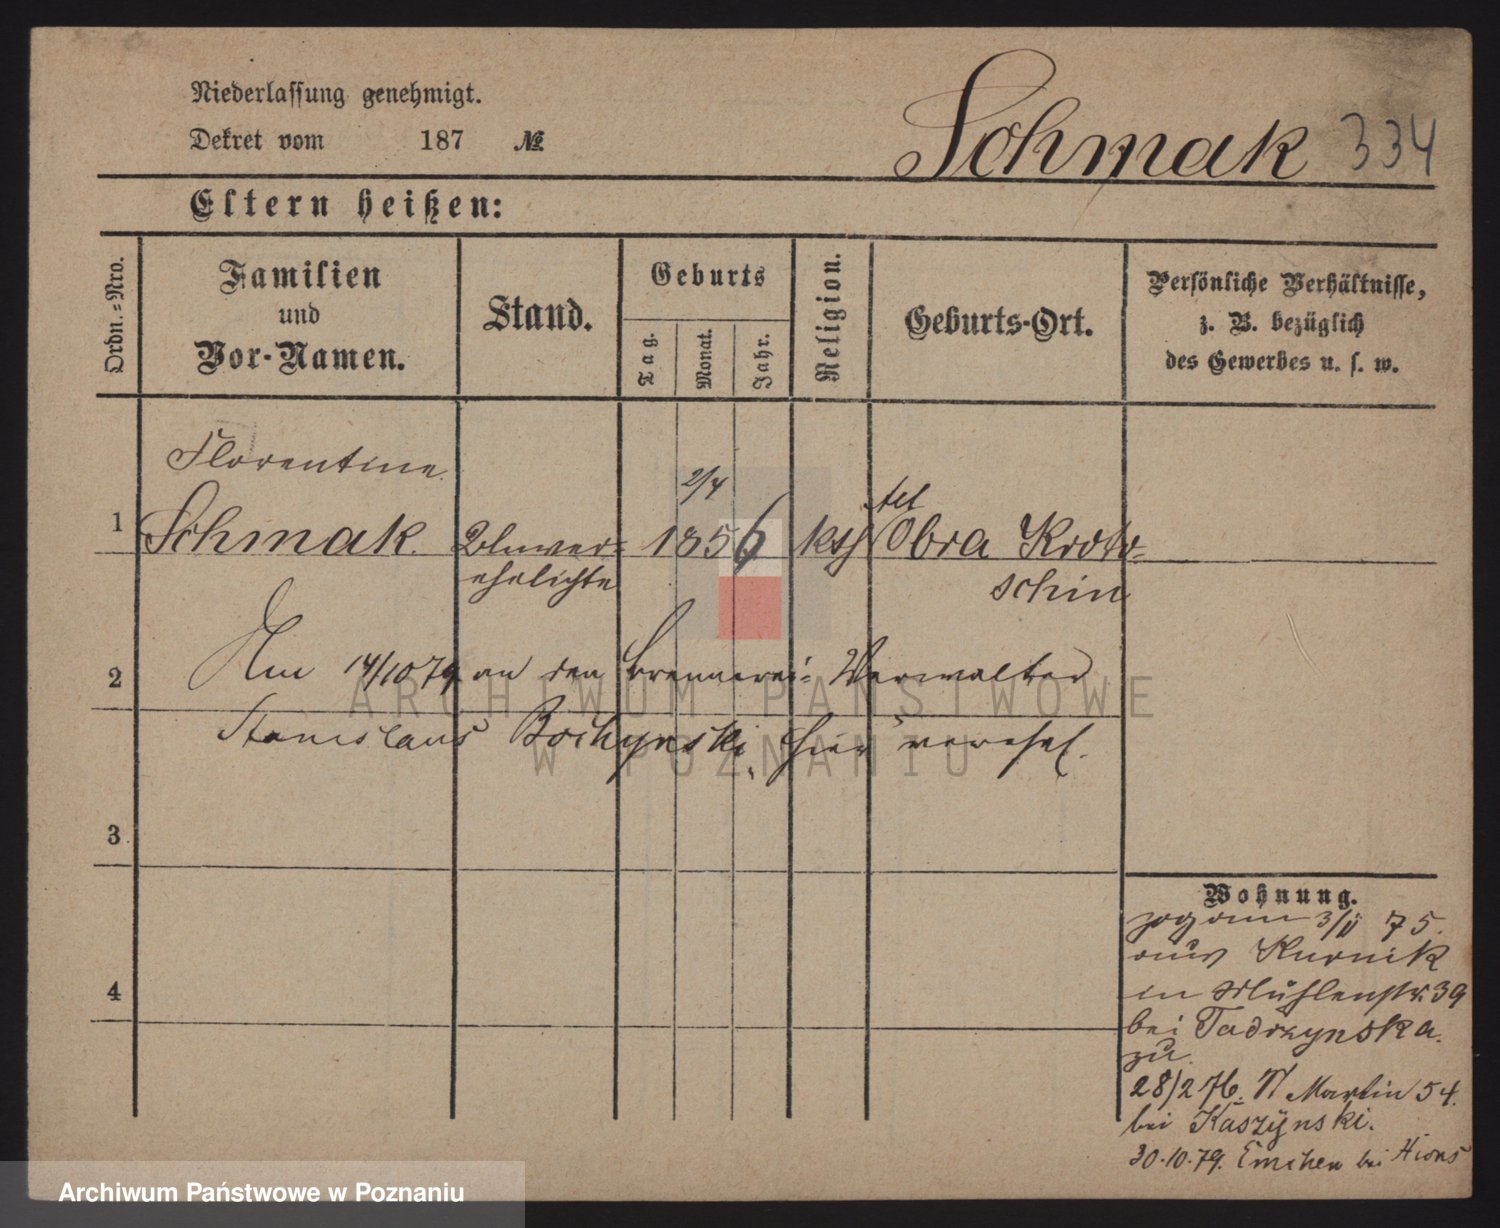 Niederlassung genehmigt.
Dekret vom 187 №
Schmak 334
Eltern heißen:
Ordn.-Nro.
Familien
und
Vor-Namen.
Stand.
Geburts
Tag.
Monat.
Jahr.
Religion.
Geburts-Ort.
Persönliche Verhältnisse,
z. B. bezüglich
des Gewerbes u. s. w.
Florentine
2/4
1 Schmak. Unver= 1856 kth Obra Kroto=
ehelichte schin
2 Am 14/10 79 an den Brennerei=Verwalter
Stanislaus hier verehel.
3
4
Wohnung.
zog am 3/ 75.
aus Kurnik
in Mühlenstr. 39
bei Tadrzynska
zu.
28/2 76. St Martin 54.
bei Kaszynski.
30.10.79. bei
ARCHIWUM PAŃSTWOWE
W POZNANIU
Archiwum Państwowe w Poznaniu